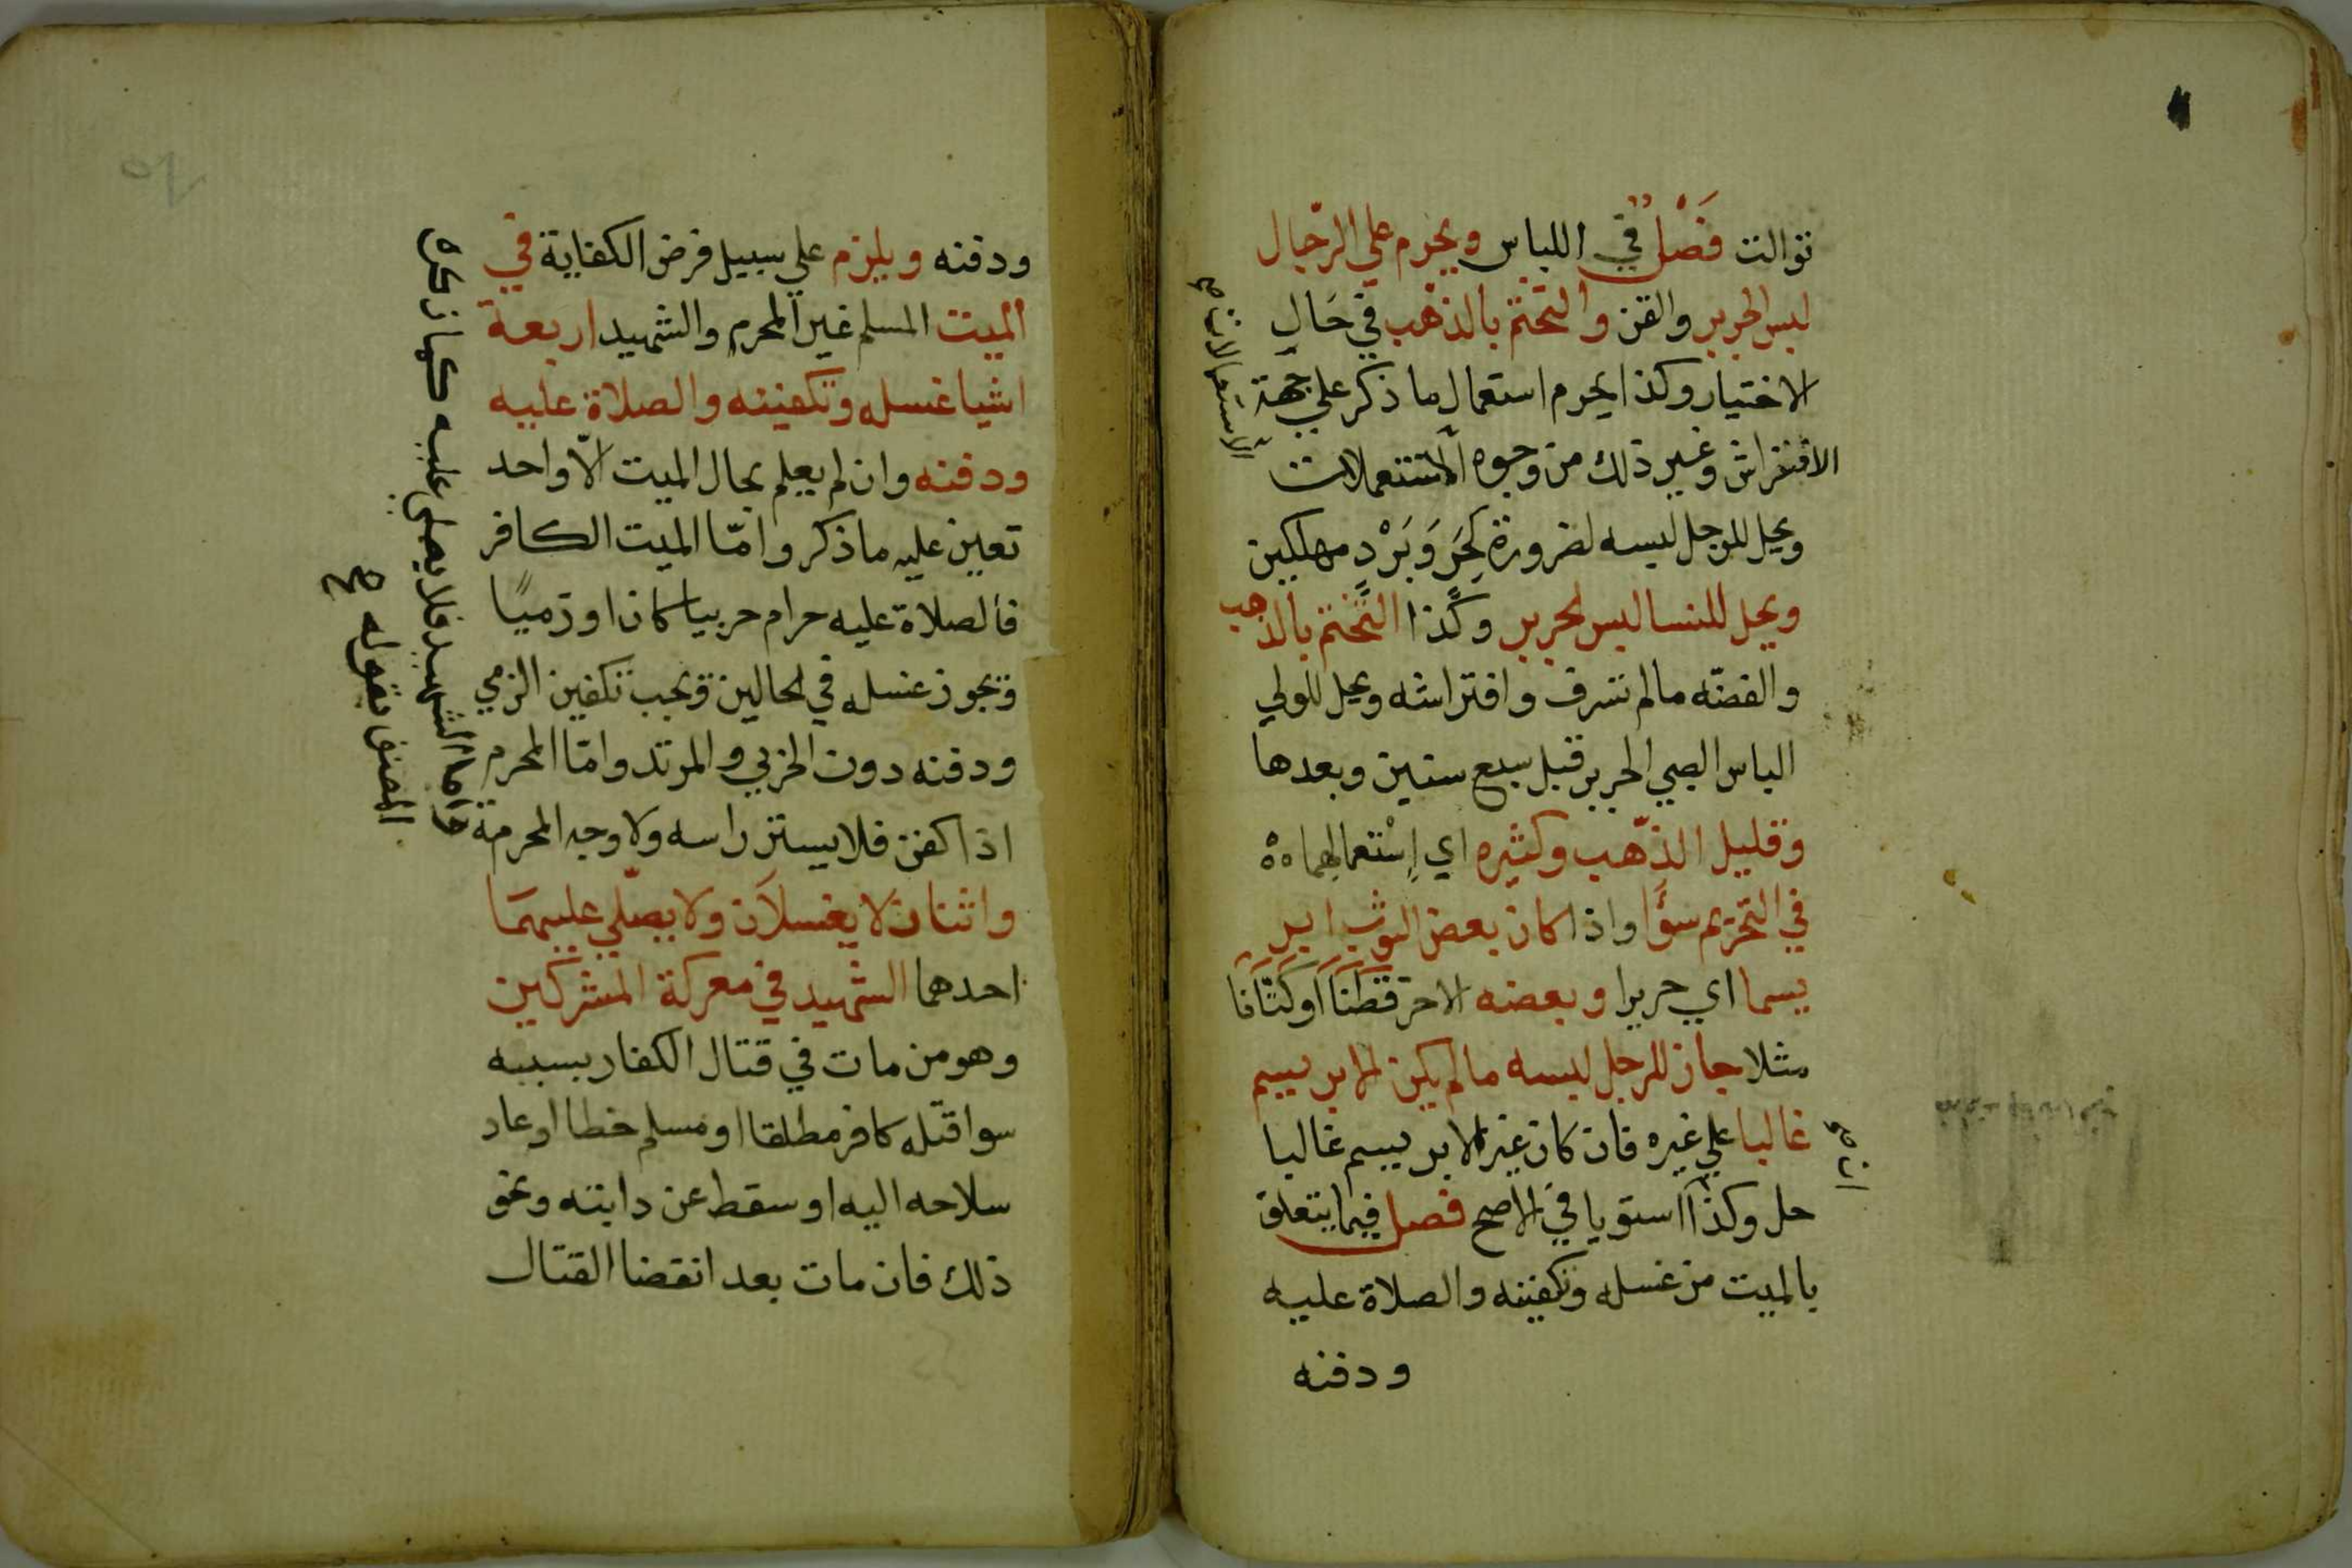 توالت فَصْلٌ في اللباس ويحرم علي الرّجال
لبس الحرير والقز والتختم بالذهب في حَالِ
الاختيار وكذا يحرم استعمال ما ذكر علي جهة
الافتراش وغير ذلك من وجوه الاستتعملات
الاستعمالات صح
ويحل للرجل لبسه لضرورة كحَرٍّ وَبَرْدٍ مهلكين
ويحل للنسا لبس الحرير وكذا التختم بالذهب
والفضّه مالم تسرف وافتراشه ويحل للولي
الباس الصبي الحرير قبل سبع سنين وبعدها
وقليل الذّهب وكثيره اي اِسْتعمالهما
في التحريم سؤا واذا كان بعض الثوب ابر
يسما اي حريرا وبعضه الاخر قطنًا او كتّانًا
مثلا جاز للرجل لبسه مالم يكن الابريسم
غالبا علي غيره فان كان غير الابريسم غالبا
حل وكذا استويا في الاصح فصل فيما يتعلق
ان صح
بالميت من غسله وتكفينه والصلاة عليه
ودفنه
ودفنه ويلزم علي سبيل فرض الكفاية في
الميت المسلم غير المحرم والشهيد اربعة
اشيا غسله وتكفينه والصلاة عليه
ودفنه وان لم يعلم بحال الميت الّا واحد
تعين عليه ما ذكر وامّا الميت الكافر
فالصلاة عليه حرام حربيا كان او ذميًا
ويجوز غسله في الحالين ويجب تكفين الزمي
ودفنه دون الحربي والمرتد وامّا المحرم
اذا كفن فلا يستر راسه ولا وجه المحرمة
واثنان لا يغسلان ولا يصلّي عليهمَا
احدهما الشهيد في معركة المشركين
وهو من مات في قتال الكفار بسببه
سوا قتله كافر مطلقا او مسلم خطا او عاد
سلاحه اليه او سقط عن دابته ونحو
ذلك فان مات بعد انقضا القتال
واما الشهيد فلا يصلي عليه كما ذكره
المصنف بقوله